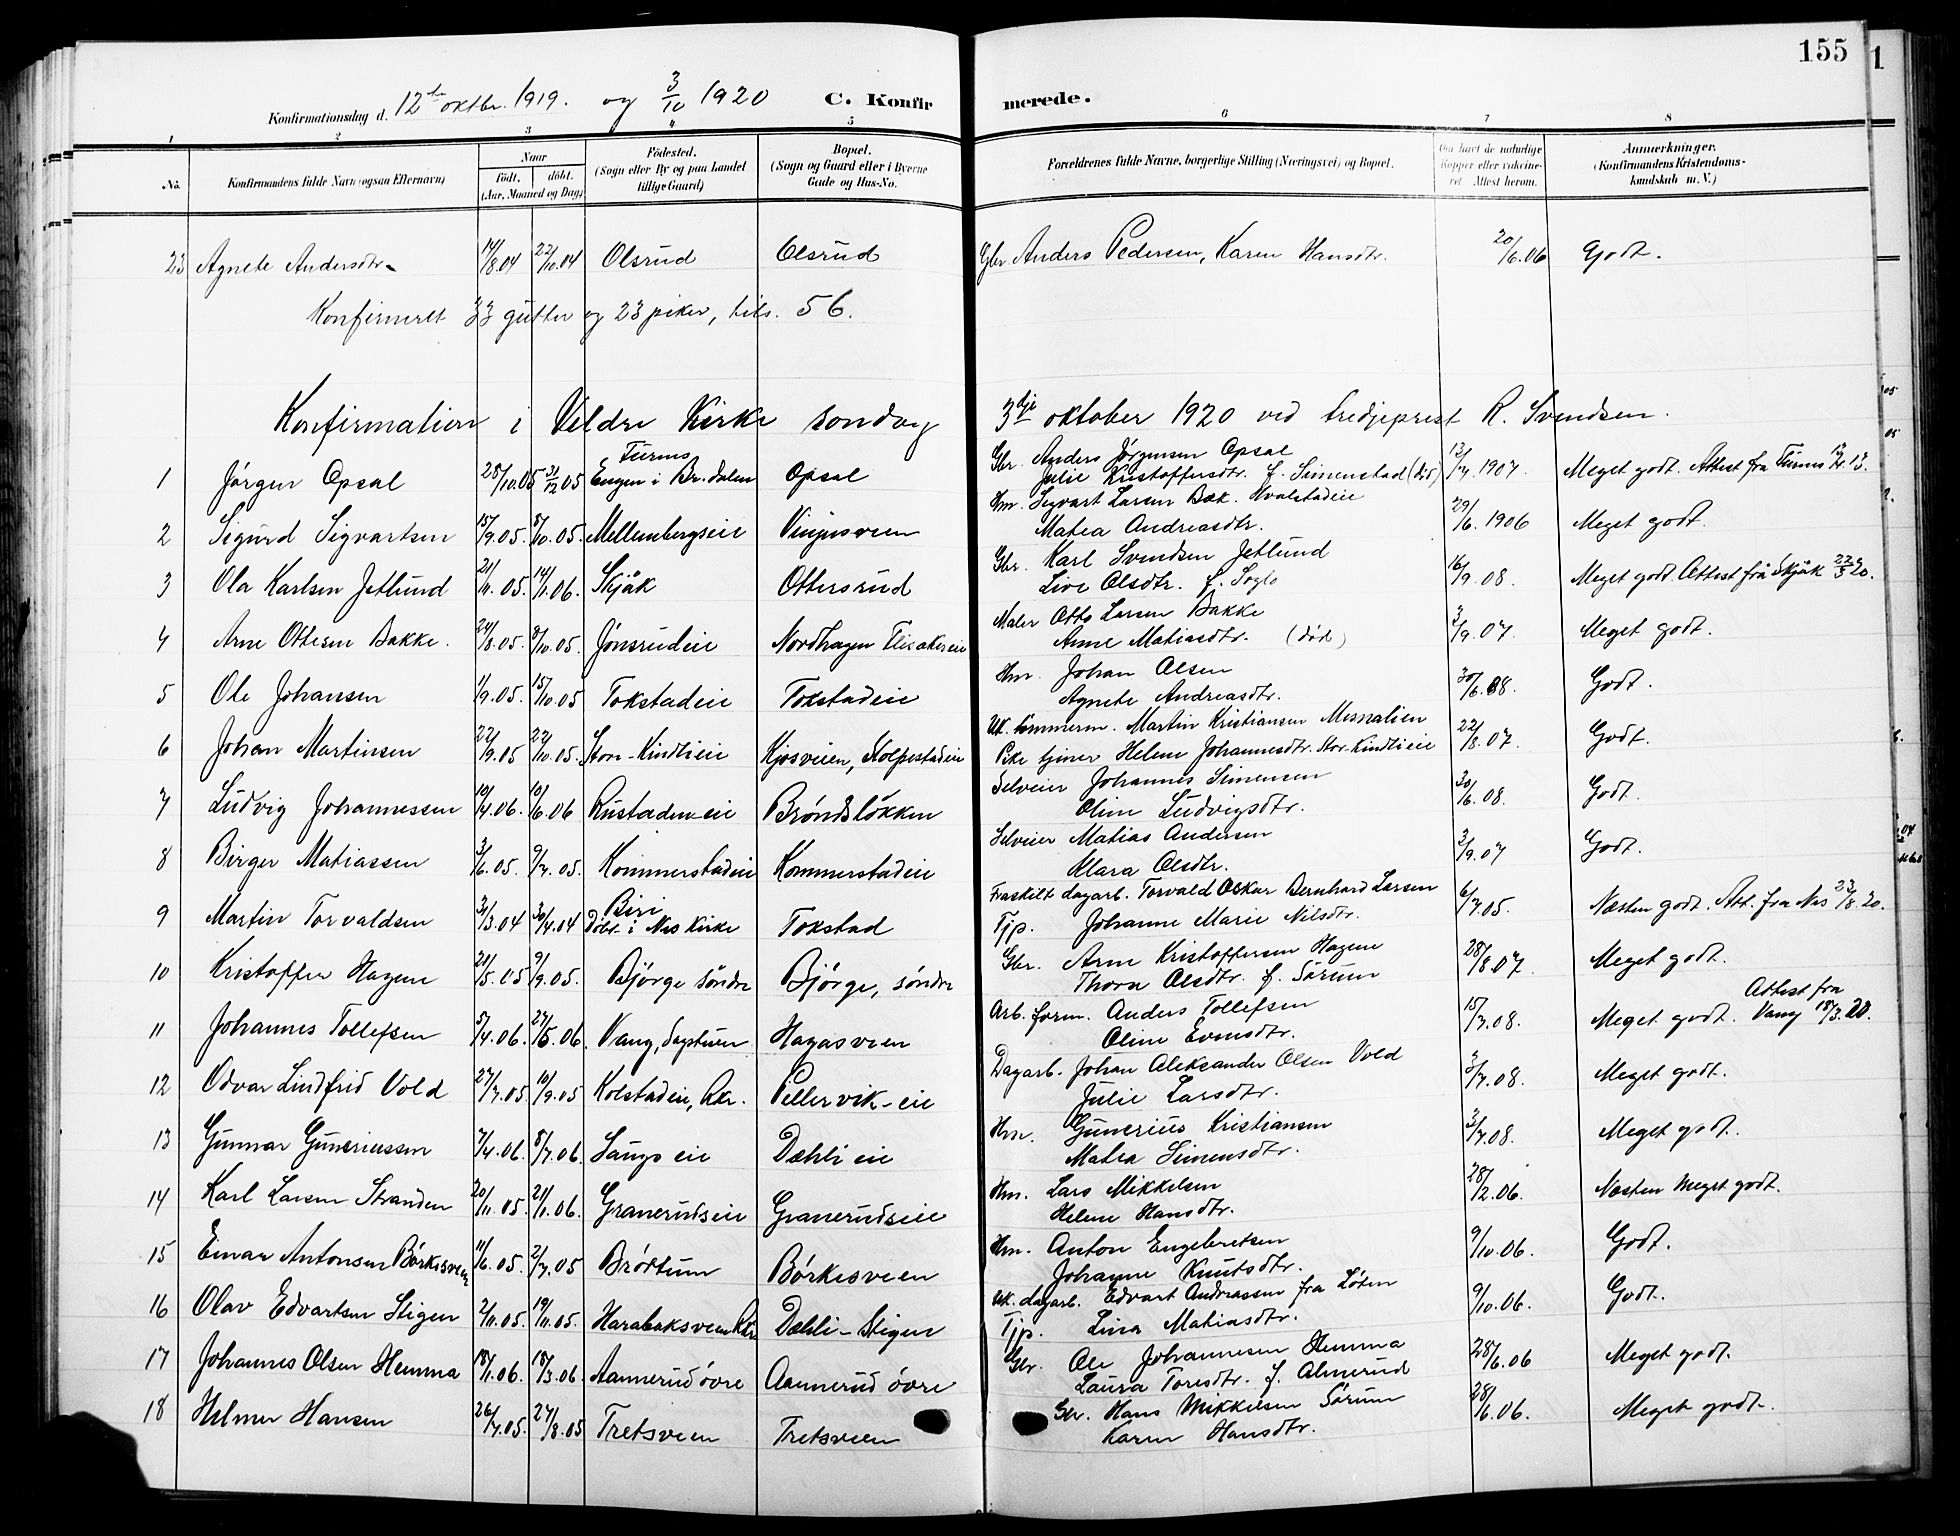 155
Konfirmationsdag d. 12te oktbr. 1919. og 3/10 1920 C. Konfirmerede.
1 2 3 4 5 6 7 8
No.
Konfirmandens fulde Navn (ogsaa Efternavn)
Naar
Födt. döbt.
(Aar, Maaned og Dag)
Födested.
(Sogn eller By og paa Landet
tillige Gaard)
Bopæl.
(Sogn og Gaard eller i Byerne
Gade og Hus-No.
Forældrenes fulde Navne, borgerlige Stilling (Næringsvei) og Bopæl.
Om havt de naturlige
Kopper eller vakcine-
ret. Attest herom.
Anmærkninger.
(Konfirmandens Kristendoms-
kundskab m. V.)
23 Agnete Andersdtr. 14/8.04 22/10.04 Olsrud Olsrud Gbr. Anders Pedersen, Karen Hansdtr. 20/6.06 Godt.
Konfirmeret 33 gutter og 23 piker, tils. 56.
Konfirmation i Veldre Kirke søndag 3dje oktober 1920 ved tredjeprest R. Svendsen.
1 Jørgen Opsal 28/10.05 31/12 05 Furnes Engen i Br.dalen Opsal Gbr. Anders Jørgensen Opsal
Julie Kristoffersdtr. f. Simenstad (død) 13/7 1907. Meget godt. Attest fra Furnes
2 Sigurd Sigvartsen 15/9.05. 8/10.05. Mellembergseie Vinjusveen Hm. Sigvart Larsen Bæk. Kvalstadeie
Matea Andreasdtr. 29/6. 1906 Meget godt.
3 Ola Karlsen Jetlund 21/11.05. 14/1.06. Skjåk Ottersrud Gbr. Karl Svendsen Jetlund
Live Olsdtr. f. 16/9.08. Meget godt. Attest frå Skjåk 22/5 20.
4 Arne Ottesen Bakke. 24/8.05. 8/10.05. Jønsrudeie Nordhagen Maler Otto Larsen Bakke
Anne Matiasdtr. (død) 2/9.07. Meget godt.
5 Ole Johansen 1/9.05. 15/10.05 Tokstadeie Tokstadeie Hm. Johan Olsen
Agnete Andreasdtr. 30/6.08. Godt.
6 Johan Martinsen 22/9.05 22/10.05. Stor-Kindlieie Kjosveien, Stolpestadeie Uk. tømmerm. Martin Kristiansen Mesnalien
Pke tjener Helene Johannesdtr. Stor-Kindlieie 22/8.07. Godt.
7 Ludvig Johannessen 10/4.06. 10/6.06 Rustaden-eie Brøndsløkken Selveier Johannes Simensen
Oline Ludvigsdtr. 30/6.08. Godt.
8 Birger Matiassen 3/6.05. 9/7.05. Kommerstadeie Kommerstadeie Selveier Matias Andersen
Klara Olsdtr. 2/9.07 Godt.
9 Martin Torvaldsen 31/3.04 30/4.04 Biri Døbt i Nes Kirke Tokstad Fraskilt dagarb. Torvald Oskar Bernhard Larsen
Tjp. Johanne Marie Nilsdtr. 6/7.05. Næsten godt. Att. fra Nes 23/8.20.
10 Kristoffer Hagen 21/5.05 9/9.05. Bjørge søndre Bjørge, søndre Gbr. Arne Kristoffersen Hagen
Thora Olsdtr. f. Sørum 28/8.07. Meget godt.
11 Johannes Tollefsen 5/4.06. 27/5.06. Vang, Hagasveen Arb. form. Anders Tollefsen
Oline Evensdtr. 15/7.08. Meget godt. Attest fra Vang 18/3.20.
12 Odvar Lindfrid Vold 27/7.05. 10/9.05 Kolstadeie, Rkr. Pellervik-eie Dagarb. Johan Aleksander Olsen Vold
Julie Larsdtr. 3/7.08. Meget godt.
13 Gunnar Guneriussen 7/4.06. 8/7.06. Saugseie Dæhlieie Hm. Gunerius Kristiansen
Matea Simensdtr. 3/7.08. Meget godt.
14 Karl Larsen Stranden 20/11.05. 21/1.06. Granerudseie Granerudseie Hm. Lars Mikkelsen
Helene Hansdtr. 28/2.06. Næsten meget godt.
15 Einar Antonsen Børkesveen 11/6.05. 2/7.05 Brøttum Børkesveen Hm. Anton Engebretsen
Johanne Knutsdtr. 9/10.06. Godt.
16 Olav Edvartsen Stigen 2/11.05. 19/11.05. Harabaksveen Rkr. Dæhli-Stigen Uk. dagarb. Edvart Andreassen fra Løten
Tjp. Lina Matiasdtr. 9/10.06. Godt.
17 Johannes Olsen Hemma 18/1.06. 18/3.06. Aannerud øvre Aannerud øvre Gbr. Ole Johannesen Hemma
Laura Toresdtr. f. Almerud 28/6.06 Meget godt.
18 Helmer Hansen 26/7.05. 27/8.05 Tretsveen Tretsveen Gbr. Hans Mikkelsen Sørum
Karen Hansdtr. 28/6.06. Meget godt.